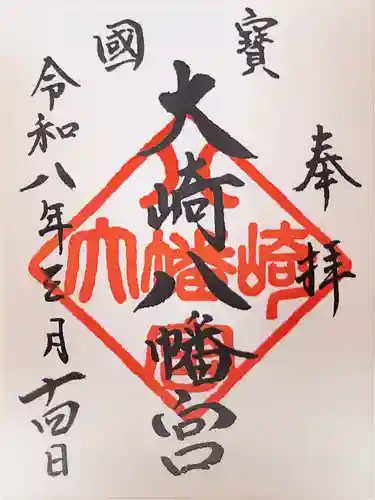 奉拝
寳
國
大崎八幡宮
令和八年三月十四日
大崎八幡宮